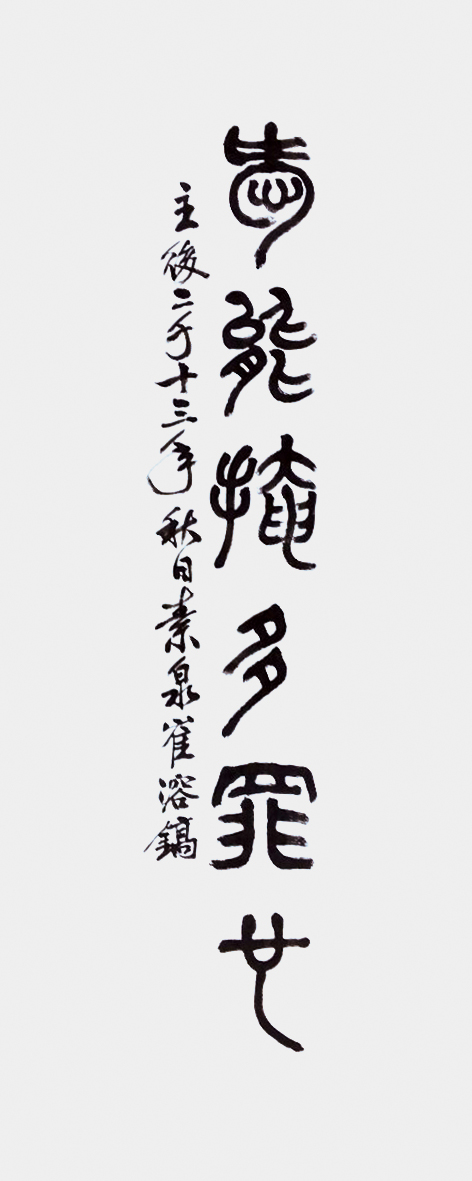 愛能掩多罪也
主後二千十三年秋日素泉崔溶鎬